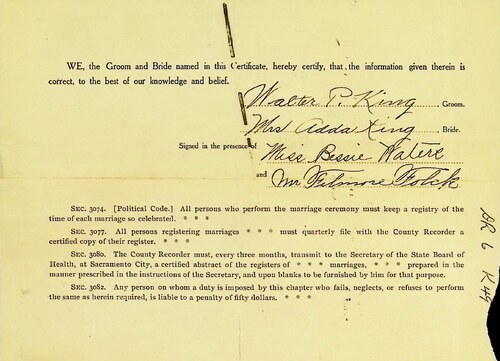 WE, the Groom and Bride named in this Certificate, hereby certify, that the information given therein is
correct, to the best of our knowledge and belief.
Walter P. King Groom.
Mrs Adda King, Bride.
Signed in the presence of Miss Bessie Waters
and Mr Filmore Folck
SEC. 3074. [Political Code.] All persons who perform the marriage ceremony must keep a registry of the
time of each marriage so celebrated. * * *
SEC. 3077. All persons registering marriages * * * must quarterly file with the County Recorder
a certified copy of their register. * * *
SEC. 3080. The County Recorder must, every three months, transmit to the Secretary of the State Board of
Health, at Sacramento City, a certified abstract of the registers of * * * marriages, * * * prepared in the
manner prescribed in the instructions of the Secretary, and upon blanks to be furnished by him for that purpose.
SEC. 3082. Any person on whom a duty is imposed by this chapter who fails, neglects, or refuses to perform
the same as herein required, is liable to a penalty of fifty dollars. * * *
6 K49